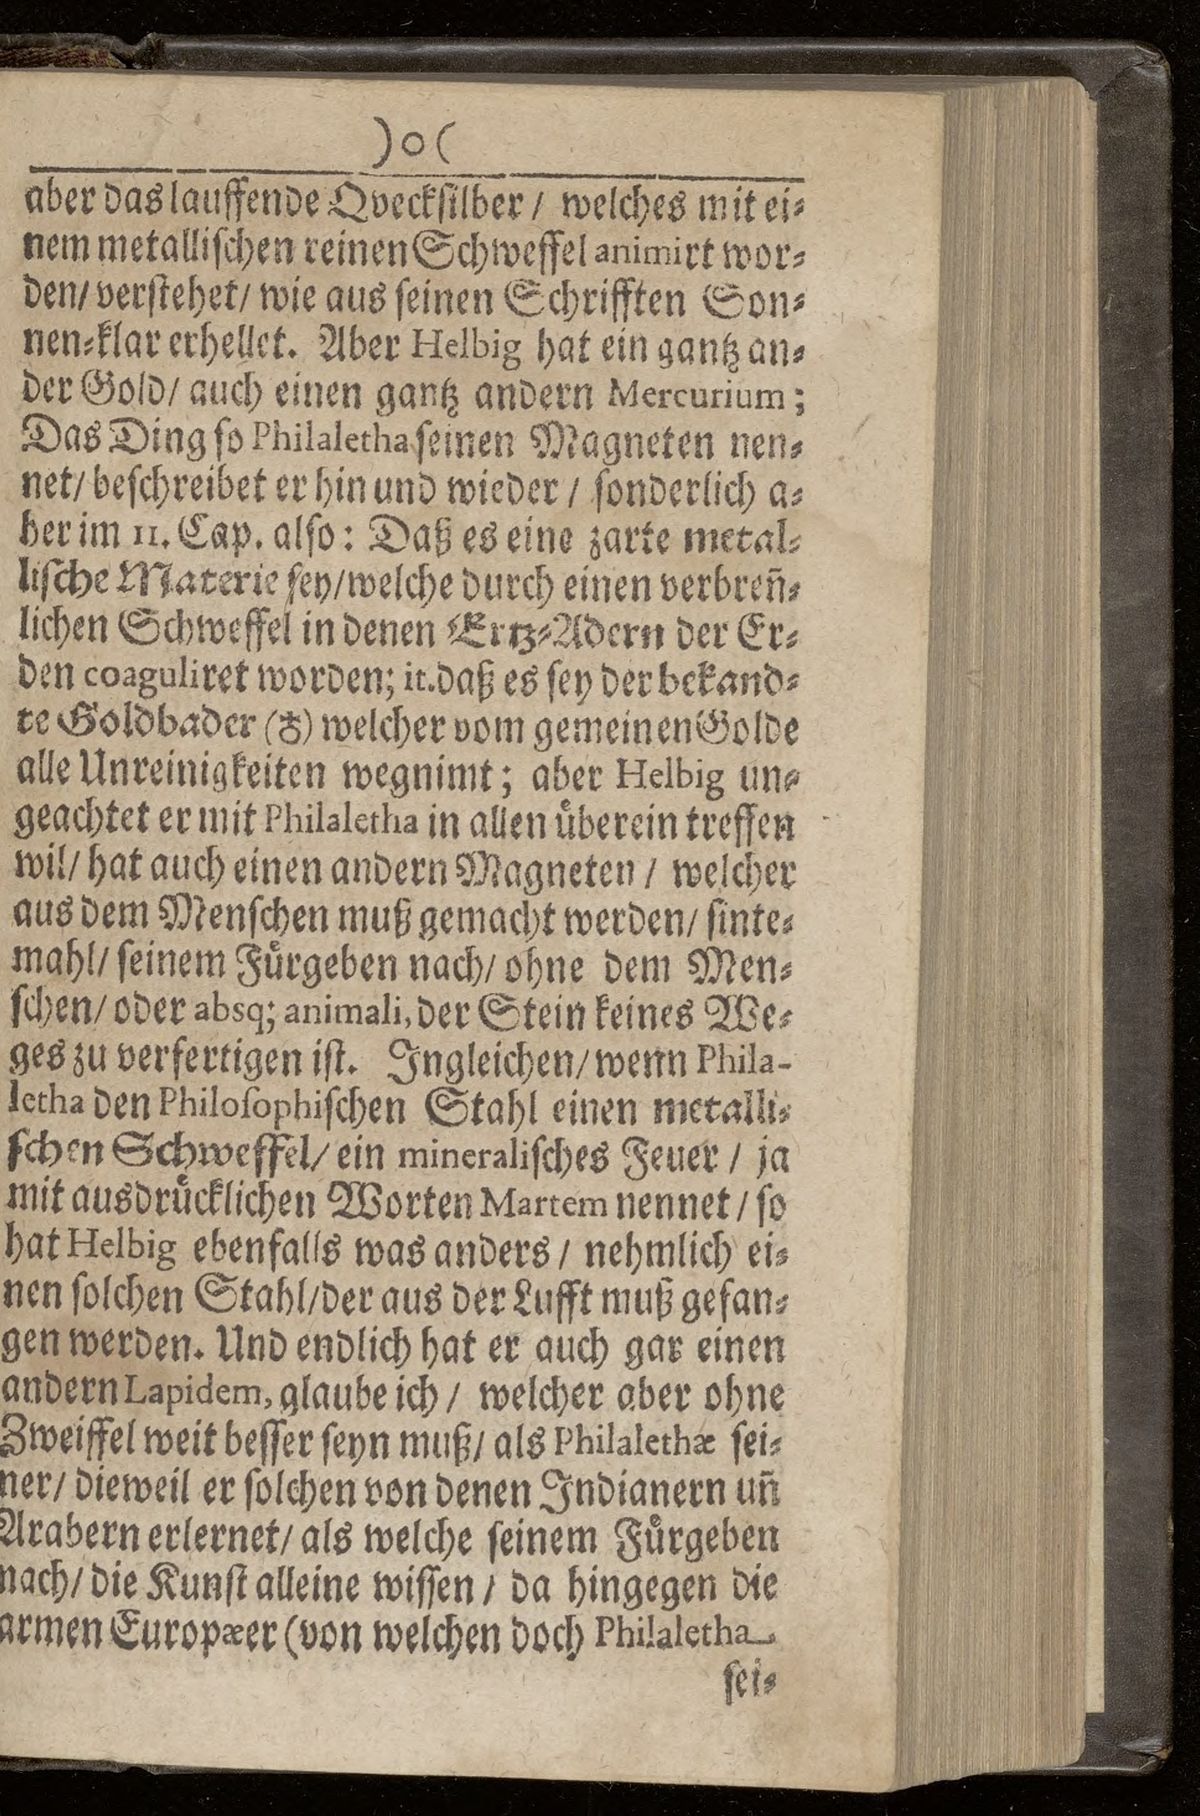 )o(
aber das lauffende Qvecksilber / welches mit ei⸗
nem metallischen reinen Schweffel animirt wor⸗
den/ verstehet/ wie aus seinen Schrifften Son⸗
nen⸗klar erhellet. Aber Helbig hat ein gantz an⸗
der Gold/ auch einen gantz andern Mercurium;
Das Ding so Philaletha seinen Magneten nen⸗
net/ beschreibet er hin und wieder / sonderlich a⸗
ber im 11. Cap. also: Daß es eine zarte metal⸗
lische Materie sey/welche durch einen verbreñ⸗
lichen Schweffel in denen Ertz⸗Adern der Er⸗
den coaguliret worden; it. daß es sey der bekand⸗
te Goldbader (♁) welcher vom gemeinen Golde
alle Unreinigkeiten wegnimt; aber Helbig un⸗
geachtet er mit Philaletha in allen uͤberein treffen
wil/ hat auch einen andern Magneten / welcher
aus dem Menschen muß gemacht werden/ sinte⸗
mahl/ seinem Fuͤrgeben nach/ ohne dem Men⸗
schen/ oder absq; animali, der Stein keines We⸗
ges zu verfertigen ist. Ingleichen/ wenn Phila-
letha den Philosophischen Stahl einen metalli⸗
schen Schweffel/ ein mineralisches Feuer / ja
mit ausdruͤcklichen Worten Martem nennet / so
hat Helbig ebenfalls was anders / nehmlich ei⸗
nen solchen Stahl/der aus der Lufft muß gefan⸗
gen werden. Und endlich hat er auch gar einen
andern Lapidem, glaube ich / welcher aber ohne
Zweiffel weit besser seyn muß/ als Philalethæ sei⸗
ner/ dieweil er solchen von denen Indianern uñ
Arabern erlernet/ als welche seinem Fuͤrgeben
nach/ die Kunst alleine wissen / da hingegen die
armen Europæer (von welchen doch Philaletha
sei⸗